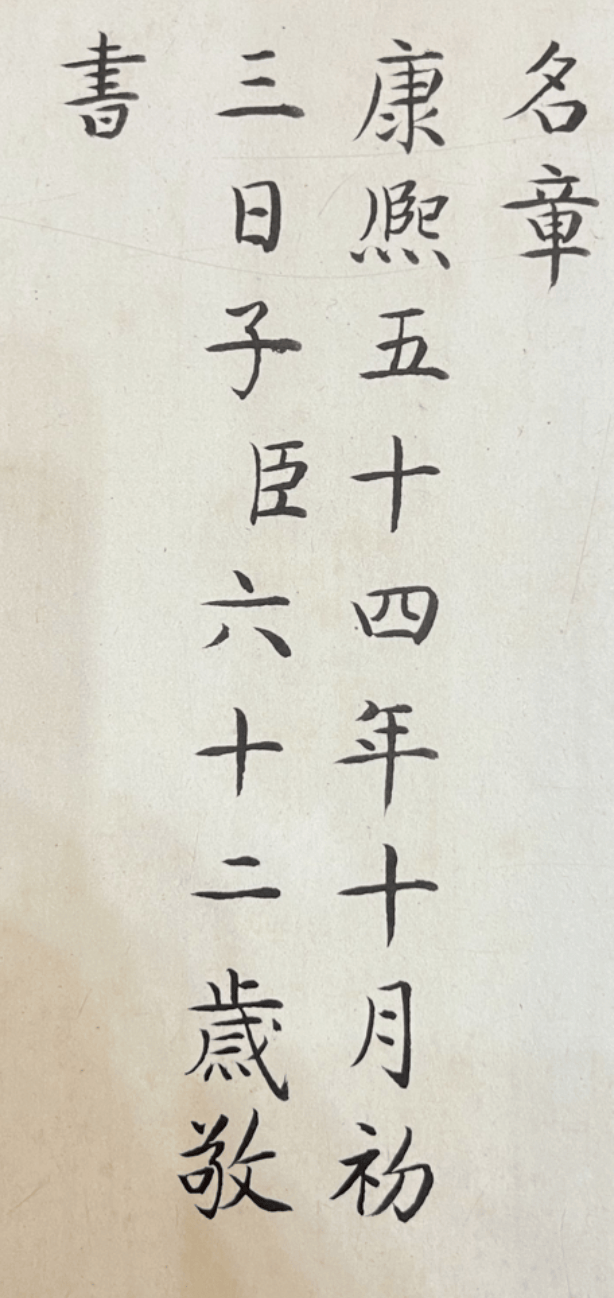 名章
康熈五十四年十月初
三日子臣六十二歳敬
書